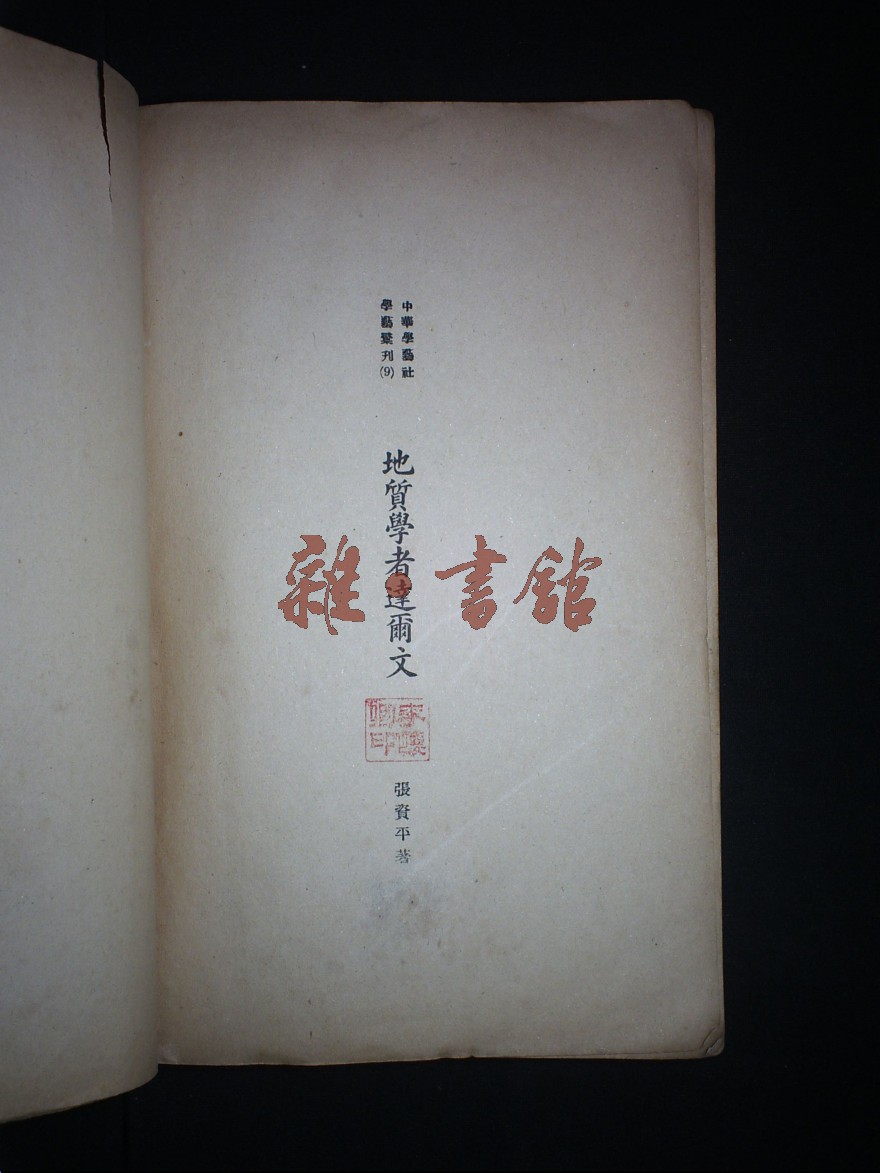 中華學藝社
學藝彙刊(9)
地質學者達爾文
張資平著
雜書館